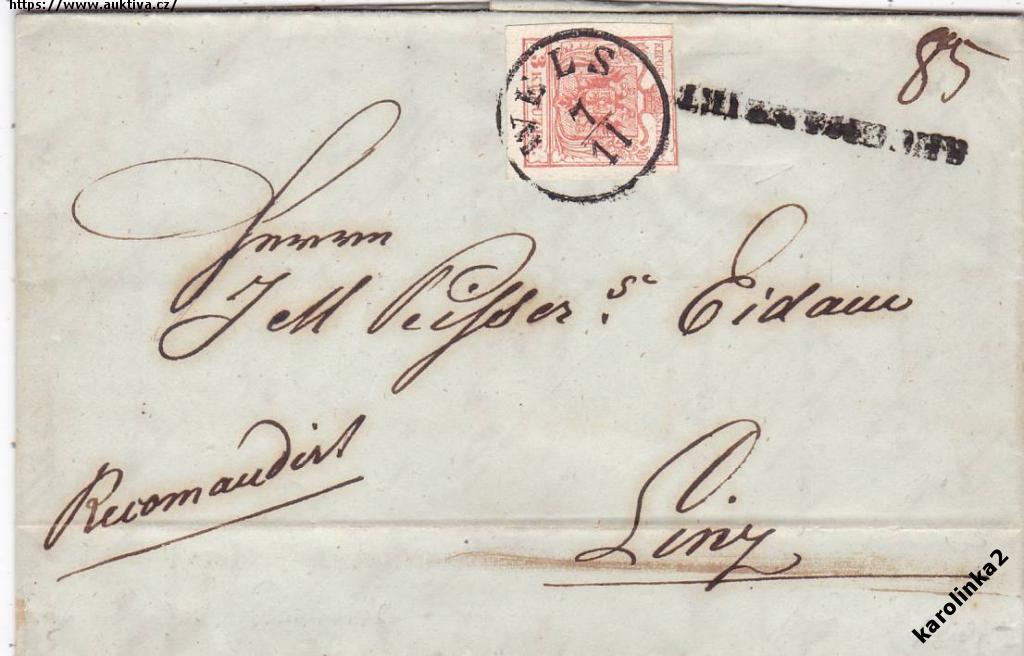 https://www.auktiva.cz/
85
WELS
7/11
3 KREUZ
Herrn
J M Peisser s. Eidam
Recomandirt
Linz
karolinka2